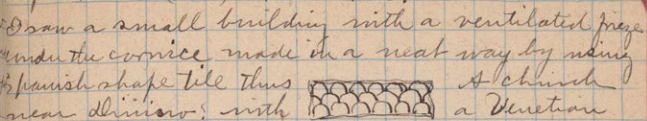 I saw a small building with a ventilated frieze
under the cornice made in a neat way by using
Spanish shape tile thus A church
near with a Venetian